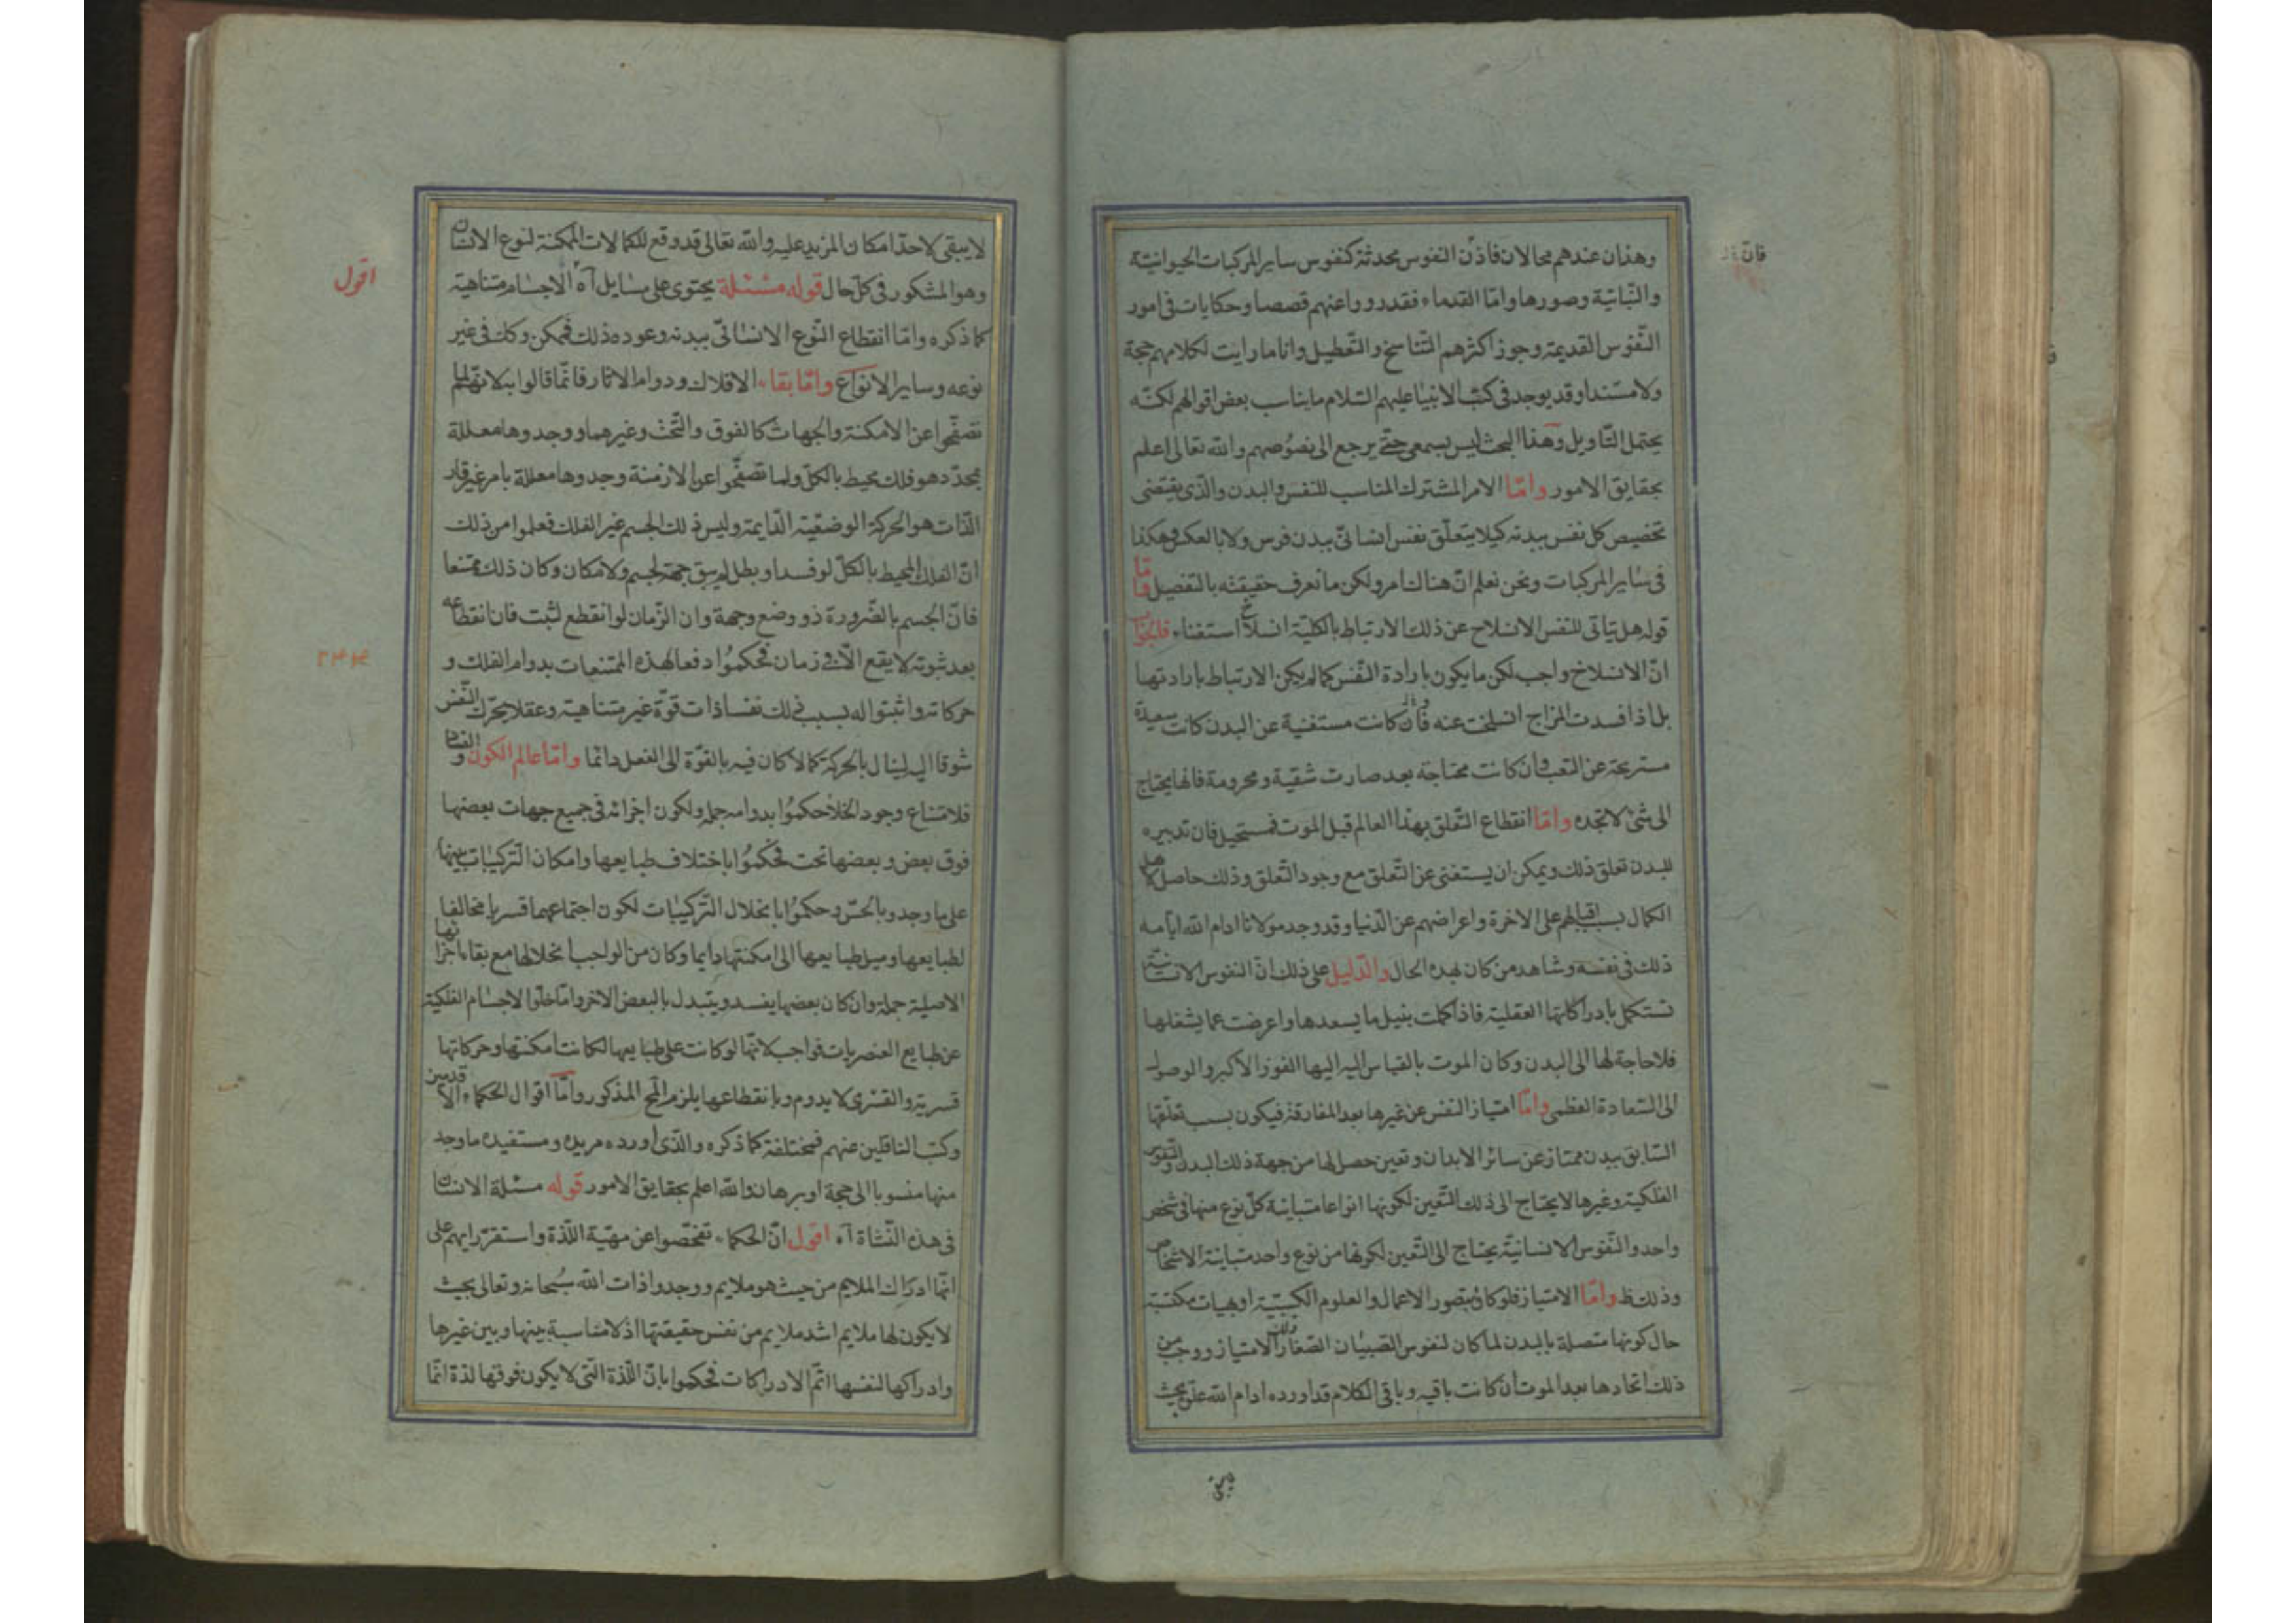 وهذان عندهم محالان فاذن النفوس محدثة كنفوس ساير المركبات الحيوانية
والنباتية وصورها واما القدماء فقد رووا عنهم قصصا وحكايات فى امور
النفوس القديمة وجوز اكثرهم التناسخ والتعطيل وانا ما رايت لكلامهم حجة
ولا مستندا وقد يوجد فى كتب الانبيا عليهم السلام ما يناسب بعض اقوالهم لكنه
يحتمل التاويل وهذا البحث ليس بسمعى حتى يرجع الى نصوصهم والله تعالى اعلم
بحقايق الامور واما الامر المشترك المناسب للنفس والبدن والذى يقتضى
تخصيص كل نفس ببدنه كيلا يتعلق نفس انسانى ببدن فرس ولا بالعكس وهكذا
فى ساير المركبات ونحن نعلم ان هناك امر ولكن ما نعرف حقيقته بالتفصيل واما
قوله هل يتاتى للنفس الانسلاخ عن ذلك الارتباط بالكلية انسلاخ استغناء فالجواب
ان الانسلاخ واجب لكن ما يكون بارادة النفس كما لم يكن الارتباط بارادتها
بل اذا فسدت المزاج انسلخت عنه فان كانت مستغنية عن البدن كانت سعيدة
مستريحة عن التعب وان كانت محتاجة بعد صارت شقية ومحرومة فانها يحتاج
الى شئ لا تجده واما انقطاع التعلق بهذا العالم قبل الموت فمستحيل فان تدبيره
للبدن تعلق ذلك ويمكن ان يستغنى عن التعلق مع وجود التعلق وذلك حاصل لاهل
الكمال بسبب اقبالهم على الاخرة واعراضهم عن الدنيا وقد وجد مولانا ادام الله ايامه
ذلك فى نفسه وشاهد من كان بهذه الحال والدليل على ذلك ان النفوس الانسانية
تستكمل بادراكاتها العقلية فاذا كملت بنيل ما يسعدها واعرضت عما يشغلها
فلا حاجة لها الى البدن وكان الموت بالقياس اليه اليها الفوز الاكبر والوصول
الى السعادة العظمى واما امتياز النفس عن غيرها بعد المفارقة فيكون بسبب تعلقها
السابق ببدن ممتاز عن سائر الابدان وتعين حصل لها من جهة ذلك البدن والنفوس
الفلكية وغيرها لا يحتاج الى ذلك التعين لكونها انواعا متباينة كل نوع منها فى شخص
واحد والنفوس الانسانية يحتاج الى التعين لكونها من نوع واحد متباينة الاشخاص
وذلك ظ واما الامتياز فلو كان بتصور الاعمال والعلوم الكسبية او هيات مكتسبة
حال كونها متصلة بالبدن لما كان لنفوس الصبيان الصغار ذلك الامتياز ووجب من
ذلك اتحادها بعد الموت ان كانت باقيه وباقى الكلام قد اورده ادام الله علوه بحيث
لا يبقى لاحد امكان المزيد عليه والله تعالى قد وقع للكمالات الممكنة لنوع الانسان
وهو المشكور فى كل حال قوله مسئلة يحتوى على مسايل آه الاجسام متناهية
اقول
كما ذكره واما انقطاع النوع الانسانى ببدنه وعوده ذلك فممكن وكك فى غير
نوعه وساير الانواع واما بقاء الافلاك ودوام الاثار فانما قالوا به لانهم لما
تصفحوا عن الامكنة والجهات كالفوق والتحت وغيرهما ووجدوها معللة
بمحدد هو فلك محيط بالكل ولما تصفحوا عن الازمنة وجدوها معللة بامر غير قار
الذات هو الحركة الوضعية الدايمة وليس ذلك الجسم غير الفلك فعلموا من ذلك
ان الفلك المحيط بالكل لو فسد او بطل لم يبق جهة لجسم ولا مكان وكان ذلك ممتنعا
فان الجسم بالضرورة ذو وضع وجهة وان الزمان لو انقطع لثبت فان انقطاعه
بعد ثبوته لا يقع الا فى زمان فحكموا دفعا لهذه الممتنعات بدوام الفلك و
حركاته واثبتوا له بسبب ذلك نفسا ذات قوة غير متناهية وعقلا يحرك النفس
شوقا اليه لينال بالحركة كمالا كان فيه بالقوة الى الفعل دائما واما عالم الكون والفساد
فلامتناع وجود الخلا حكموا بدوامه جملة ولكون اجزائه فى جميع جهات بعضها
فوق بعض وبعضها تحت فحكموا باختلاف طبايعها وامكان التركيبات بينها
على ما وجدوا بالحس وحكموا بانحلال التركيبات لكون اجتماعهما قسريا مخالفا
لطبايعها وميل طبايعها الى امكنتها دايما وكان من الواجب انحلالها مع بقاء اجزائها
الاصلية جملة وان كان بعضها يفسد ويتبدل بالبعض الاخر واما خلو الاجسام الفلكية
عن طبايع العنصريات فواجب لانها لو كانت على طبايعها لكانت امكنتها وحركاتها
قسرية والقسرى لا يدوم وبانقطاعها يلزم المح المذكور واما اقوال الحكماء الاقدمين
وكتب الناقلين عنهم فمختلفة كما ذكره والذى اورده مريده ومستفيده ما وجد
منها منسوبا الى حجة او برهان والله اعلم بحقايق الامور قوله مسئلة الانسان
فى هذه النشاة آه اقول ان الحكماء تفحصوا عن مهية اللذة واستقر رايهم على
انها ادراك الملايم من حيث هو ملايم ووجدوا ذات الله سبحانه وتعالى بحيث
لا يكون لها ملايم اشد ملايم من نفس حقيقتها اذ لا مناسبة بينها وبين غيرها
وادراكها لنفسها اتم الادراكات فحكموا بان اللذة التى لا يكون فوقها لذة انما